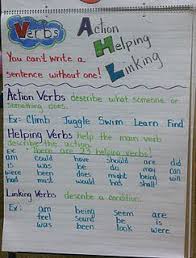 Verbs
Action
Helping
Linking
You can't write a
sentence without one!
Action Verbs describe what someone or
something does.
Ex: Climb Juggle Swim Learn Find
Helping Verbs help the main verb
describe the action.
Ex: There are 23 helping verbs!
am could have should are did
is can be shall do may
was would been will does
were has being had might must
Linking Verbs describe a condition.
Ex: am being seem are
feel smell be is
was been look were